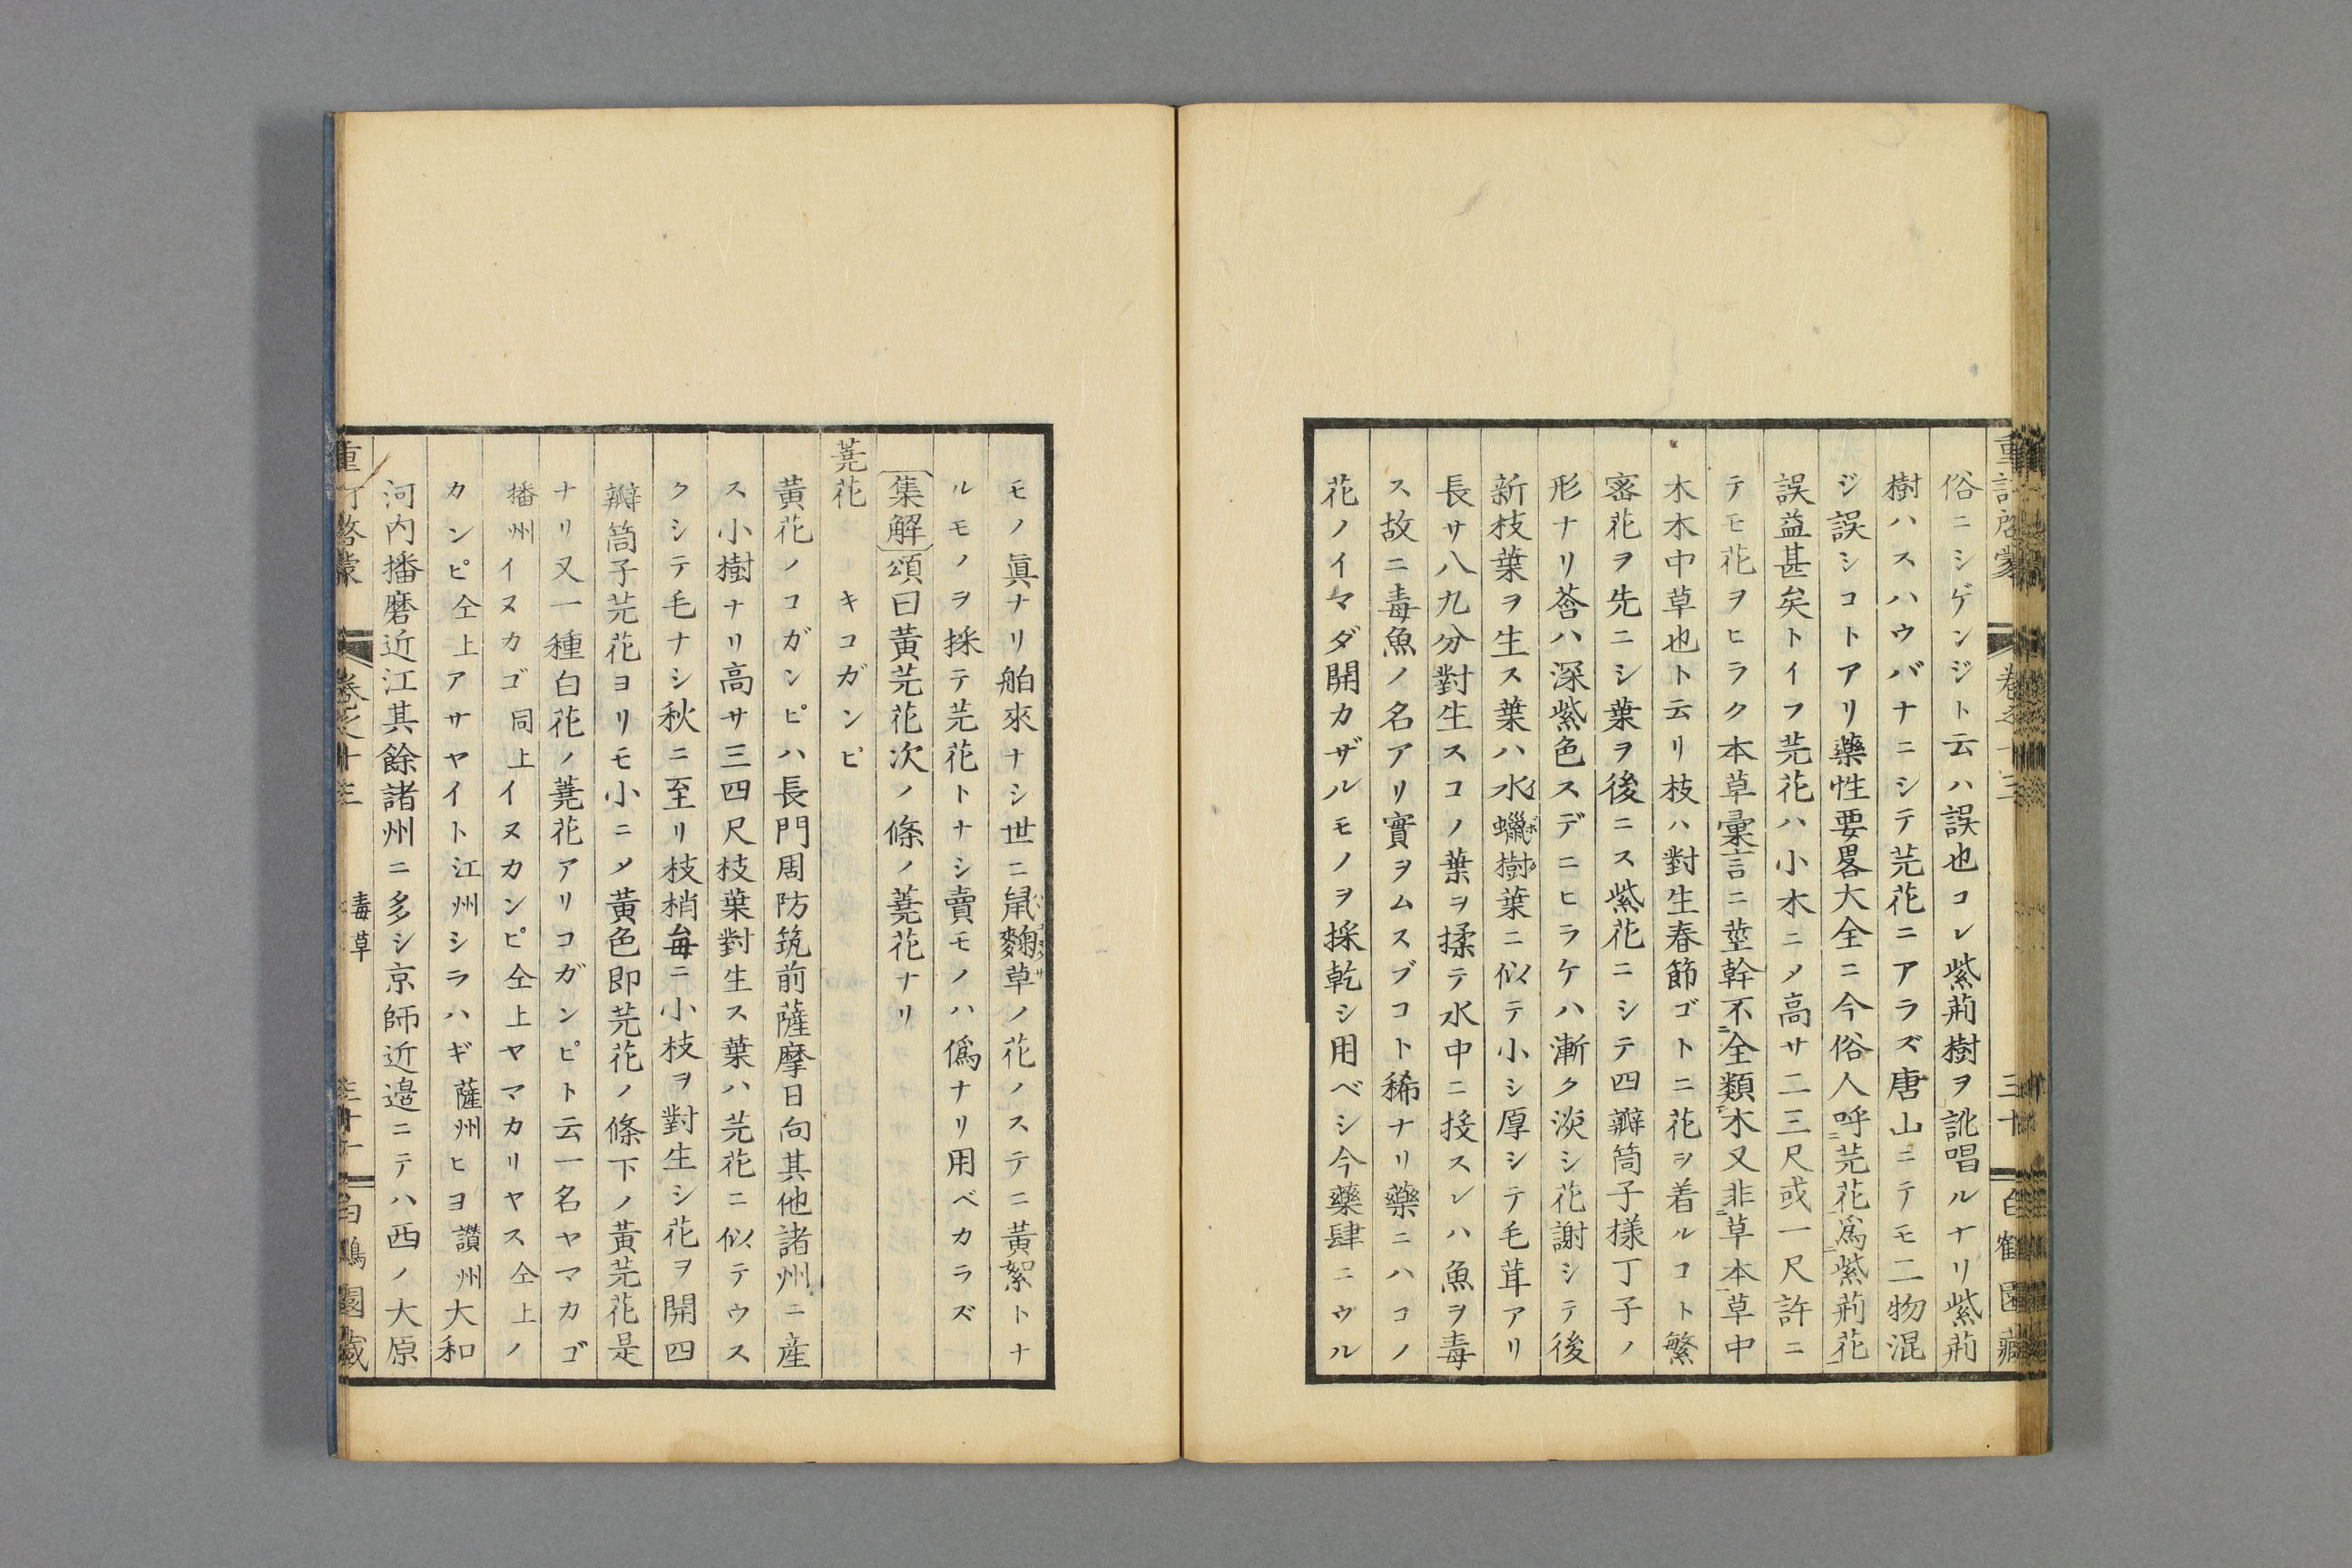 俗ニシゲンジト云ハ誤也コレ紫荊樹ヲ訛唱ルナリ紫荊
樹ハスハウバナニシテ芫花ニアラズ唐山ニテモ二物混
ジ誤シコトアリ藥性要畧大全ニ今俗人呼芫花爲紫荊花
誤益甚矣トイフ芫花ハ小木ニメ高サ二三尺或一尺許ニ
テモ花ヲヒラク本草彙言ニ莖幹不全類木又非草本草中
木木中草也ト云リ枝ハ對生春節ゴトニ花ヲ着ルコト繁
密花ヲ先ニシ葉ヲ後ニス紫花ニシテ四瓣筒子樣丁子ノ
形ナリ莟ハ深紫色スデニヒラケハ漸ク淡シ花謝シテ後
新枝葉ヲ生ス葉ハ水蠟樹葉ニ似テ小シ厚シテ毛茸アリ
長サ八九分對生スコノ葉ヲ揉テ水中ニ投スレハ魚ヲ毒
ス故ニ毒魚ノ名アリ實ヲムスブコト稀ナリ藥ニハコノ
花ノイマダ開カザルモノヲ採乾シ用ベシ今藥肆ニウル
モノ眞ナリ舶來ナシ世ニ鼠麴草ノ花ノステニ黃絮トナ
ルモノヲ採テ芫花トナシ賣モノハ僞ナリ用ベカラズ
集解頌曰黃芫花次ノ條ノ蕘花ナリ
蕘花 キコガンピ
黃花ノコガンピハ長門周防筑前薩摩日向其他諸州ニ産
ス小樹ナリ高サ三四尺枝葉對生ス葉ハ芫花ニ似テウス
クシテ毛ナシ秋ニ至リ枝梢每ニ小枝ヲ對生シ花ヲ開四
瓣筒子芫花ヨリモ小ニメ黃色即芫花ノ條下ノ黃芫花是
ナリ又一種白花ノ蕘花アリコガンピト云一名ヤマカゴ
播州イヌカゴ同上イヌカンピ仝上ヤマカリヤス仝上ノ
カンピ仝上アサヤイト江州シラハギ薩州ヒヨ讃州大和
河内播磨近江其餘諸州ニ多シ京師近邉ニテハ西ノ大原
毒草